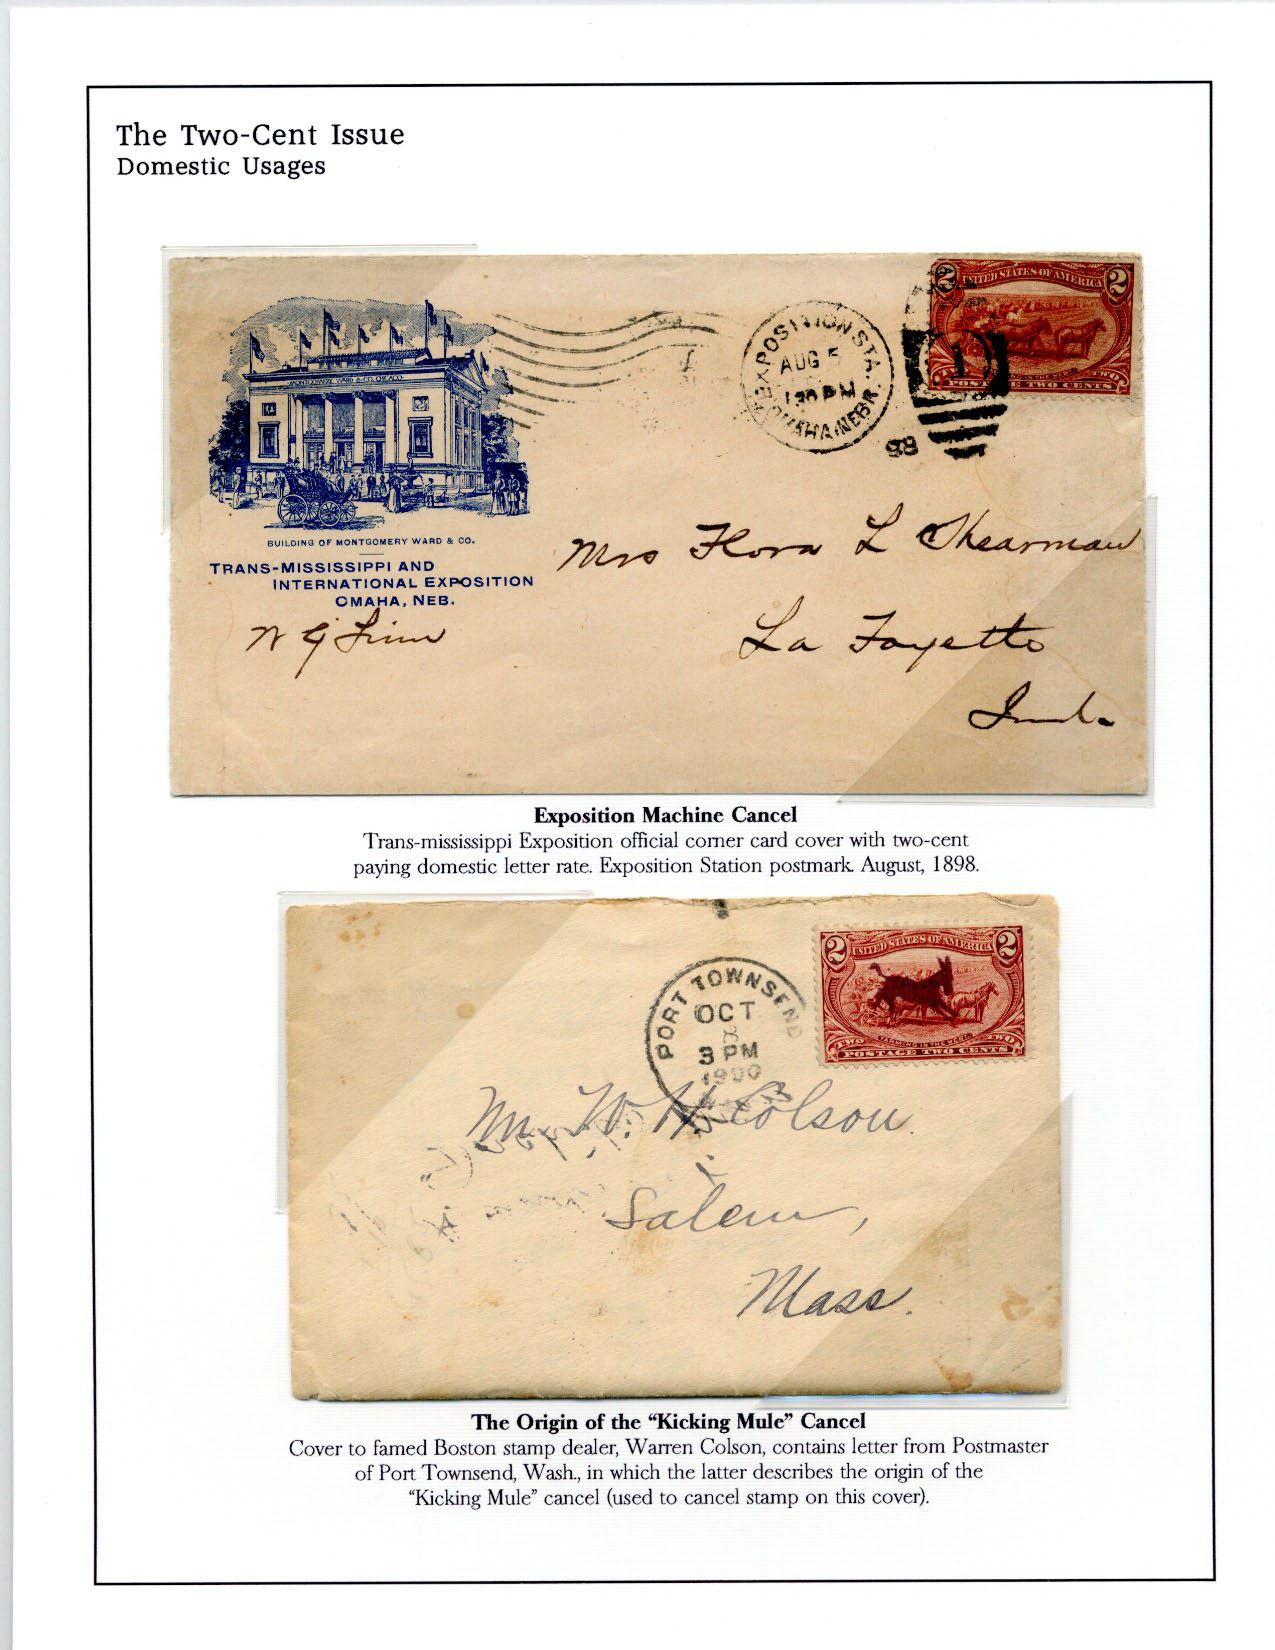 The Two-Cent Issue
Domestic Usages
2 UNITED STATES OF AMERICA 2
POSTAGE TWO CENTS
EXPOSITION STA.
AUG 5
1 30 PM
OMAHA, NEBR.
98
1
MONTGOMERY WARD & CO.
BUILDING OF MONTGOMERY WARD & CO.
TRANS-MISSISSIPPI AND
INTERNATIONAL EXPOSITION
OMAHA, NEB.
Mrs Flora L Shearman
La Fayette
Ind.
Exposition Machine Cancel
Trans-mississippi Exposition official corner card cover with two-cent
paying domestic letter rate. Exposition Station postmark. August, 1898.
2 UNITED STATES OF AMERICA 2
FARMING IN THE WEST.
TWO TWO
POSTAGE TWO CENTS
PORT TOWNSEND
OCT
3 PM
1900
Mr. W. H. Colson.
Salem,
Mass.
The Origin of the “Kicking Mule” Cancel
Cover to famed Boston stamp dealer, Warren Colson, contains letter from Postmaster
of Port Townsend, Wash., in which the latter describes the origin of the
“Kicking Mule” cancel (used to cancel stamp on this cover).